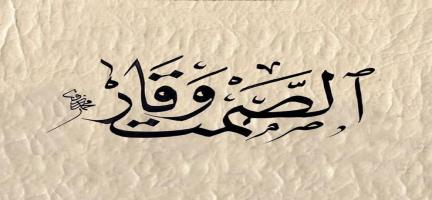 ٱلصَّمْتُ وَقَارٌ